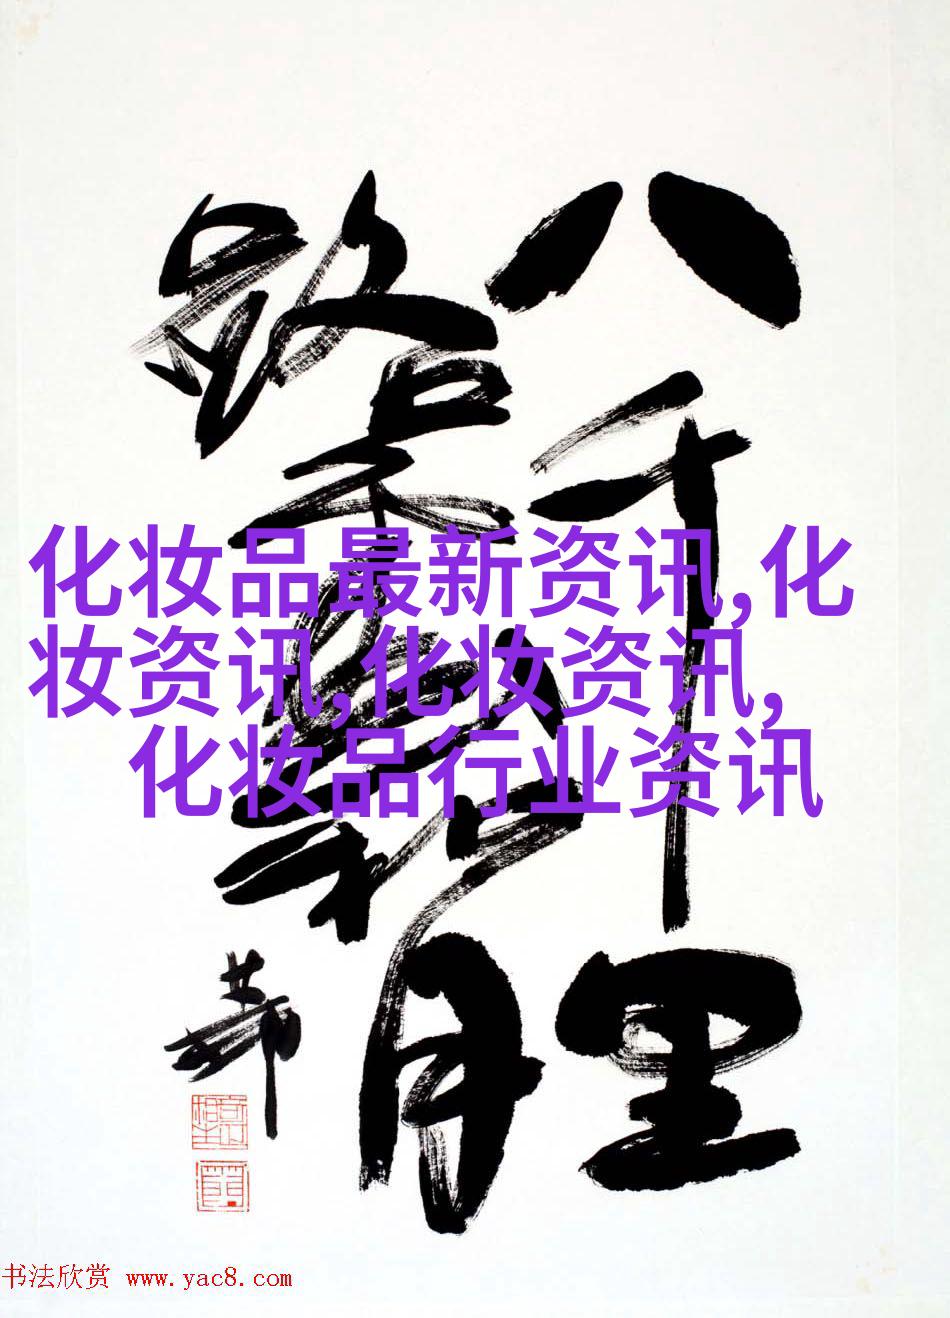 八千里
路雲和月
化妆品最新资讯,化
妆资讯,化妆资讯,
化妆品行业资讯
书法欣赏 www.yac8.com